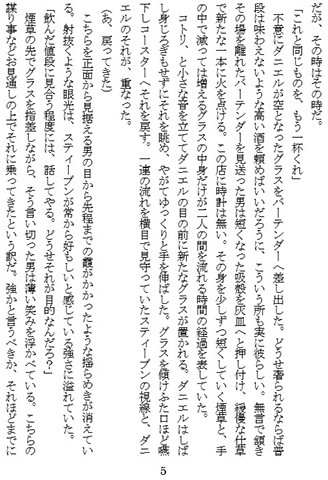 だが、その時はその時だ。
「これと同じものを、もう一杯くれ」
不意にダニエルが空となったグラスをバーテンダーへ差し出した。どうせ奢られるならば普
段は味わえないような高い酒を頼めばいいだろうに、こういう所も実に彼らしい。無言で頷き
その場を離れたバーテンダーを見送った男は短くなった吸殻を灰皿へと押し付け、緩慢な仕草
で新たな一本に火を点ける。この店に時計は無い。その身を少しずつ短くしていく煙草と、手
の中で減っては増えるグラスの中身だけが二人の間を流れる時間の経過を表していた。
コトリ、と小さな音を立ててダニエルの目の前に新たなグラスが置かれる。ダニエルはしば
し身じろぎもせずにそれを眺め、やがてゆっくりと手を伸ばした。グラスを傾けふた口ほど嚥
下しコースターへそれを戻す。一連の流れを横目で見守っていたスティーブンの視線と、ダニ
エルのそれが、重なった。
（あ、戻ってきた）
こちらを正面から見据える男の目から先程までの靄がかかったような揺らめきが消えてい
る。射抜くような眼光は、スティーブンが常から好もしいと感じている強さに溢れていた。
「飲んだ値段に見合う程度には、話してやる。どうせそれが目的なんだろ？」
煙草の先でグラスを指差しながら、そう言い切った男は薄い笑みを浮かべている。こちらの
謀り事などお見通しの上でそれに乗ってきたという訳だ。強かと言うべきか、それほどまでに
5